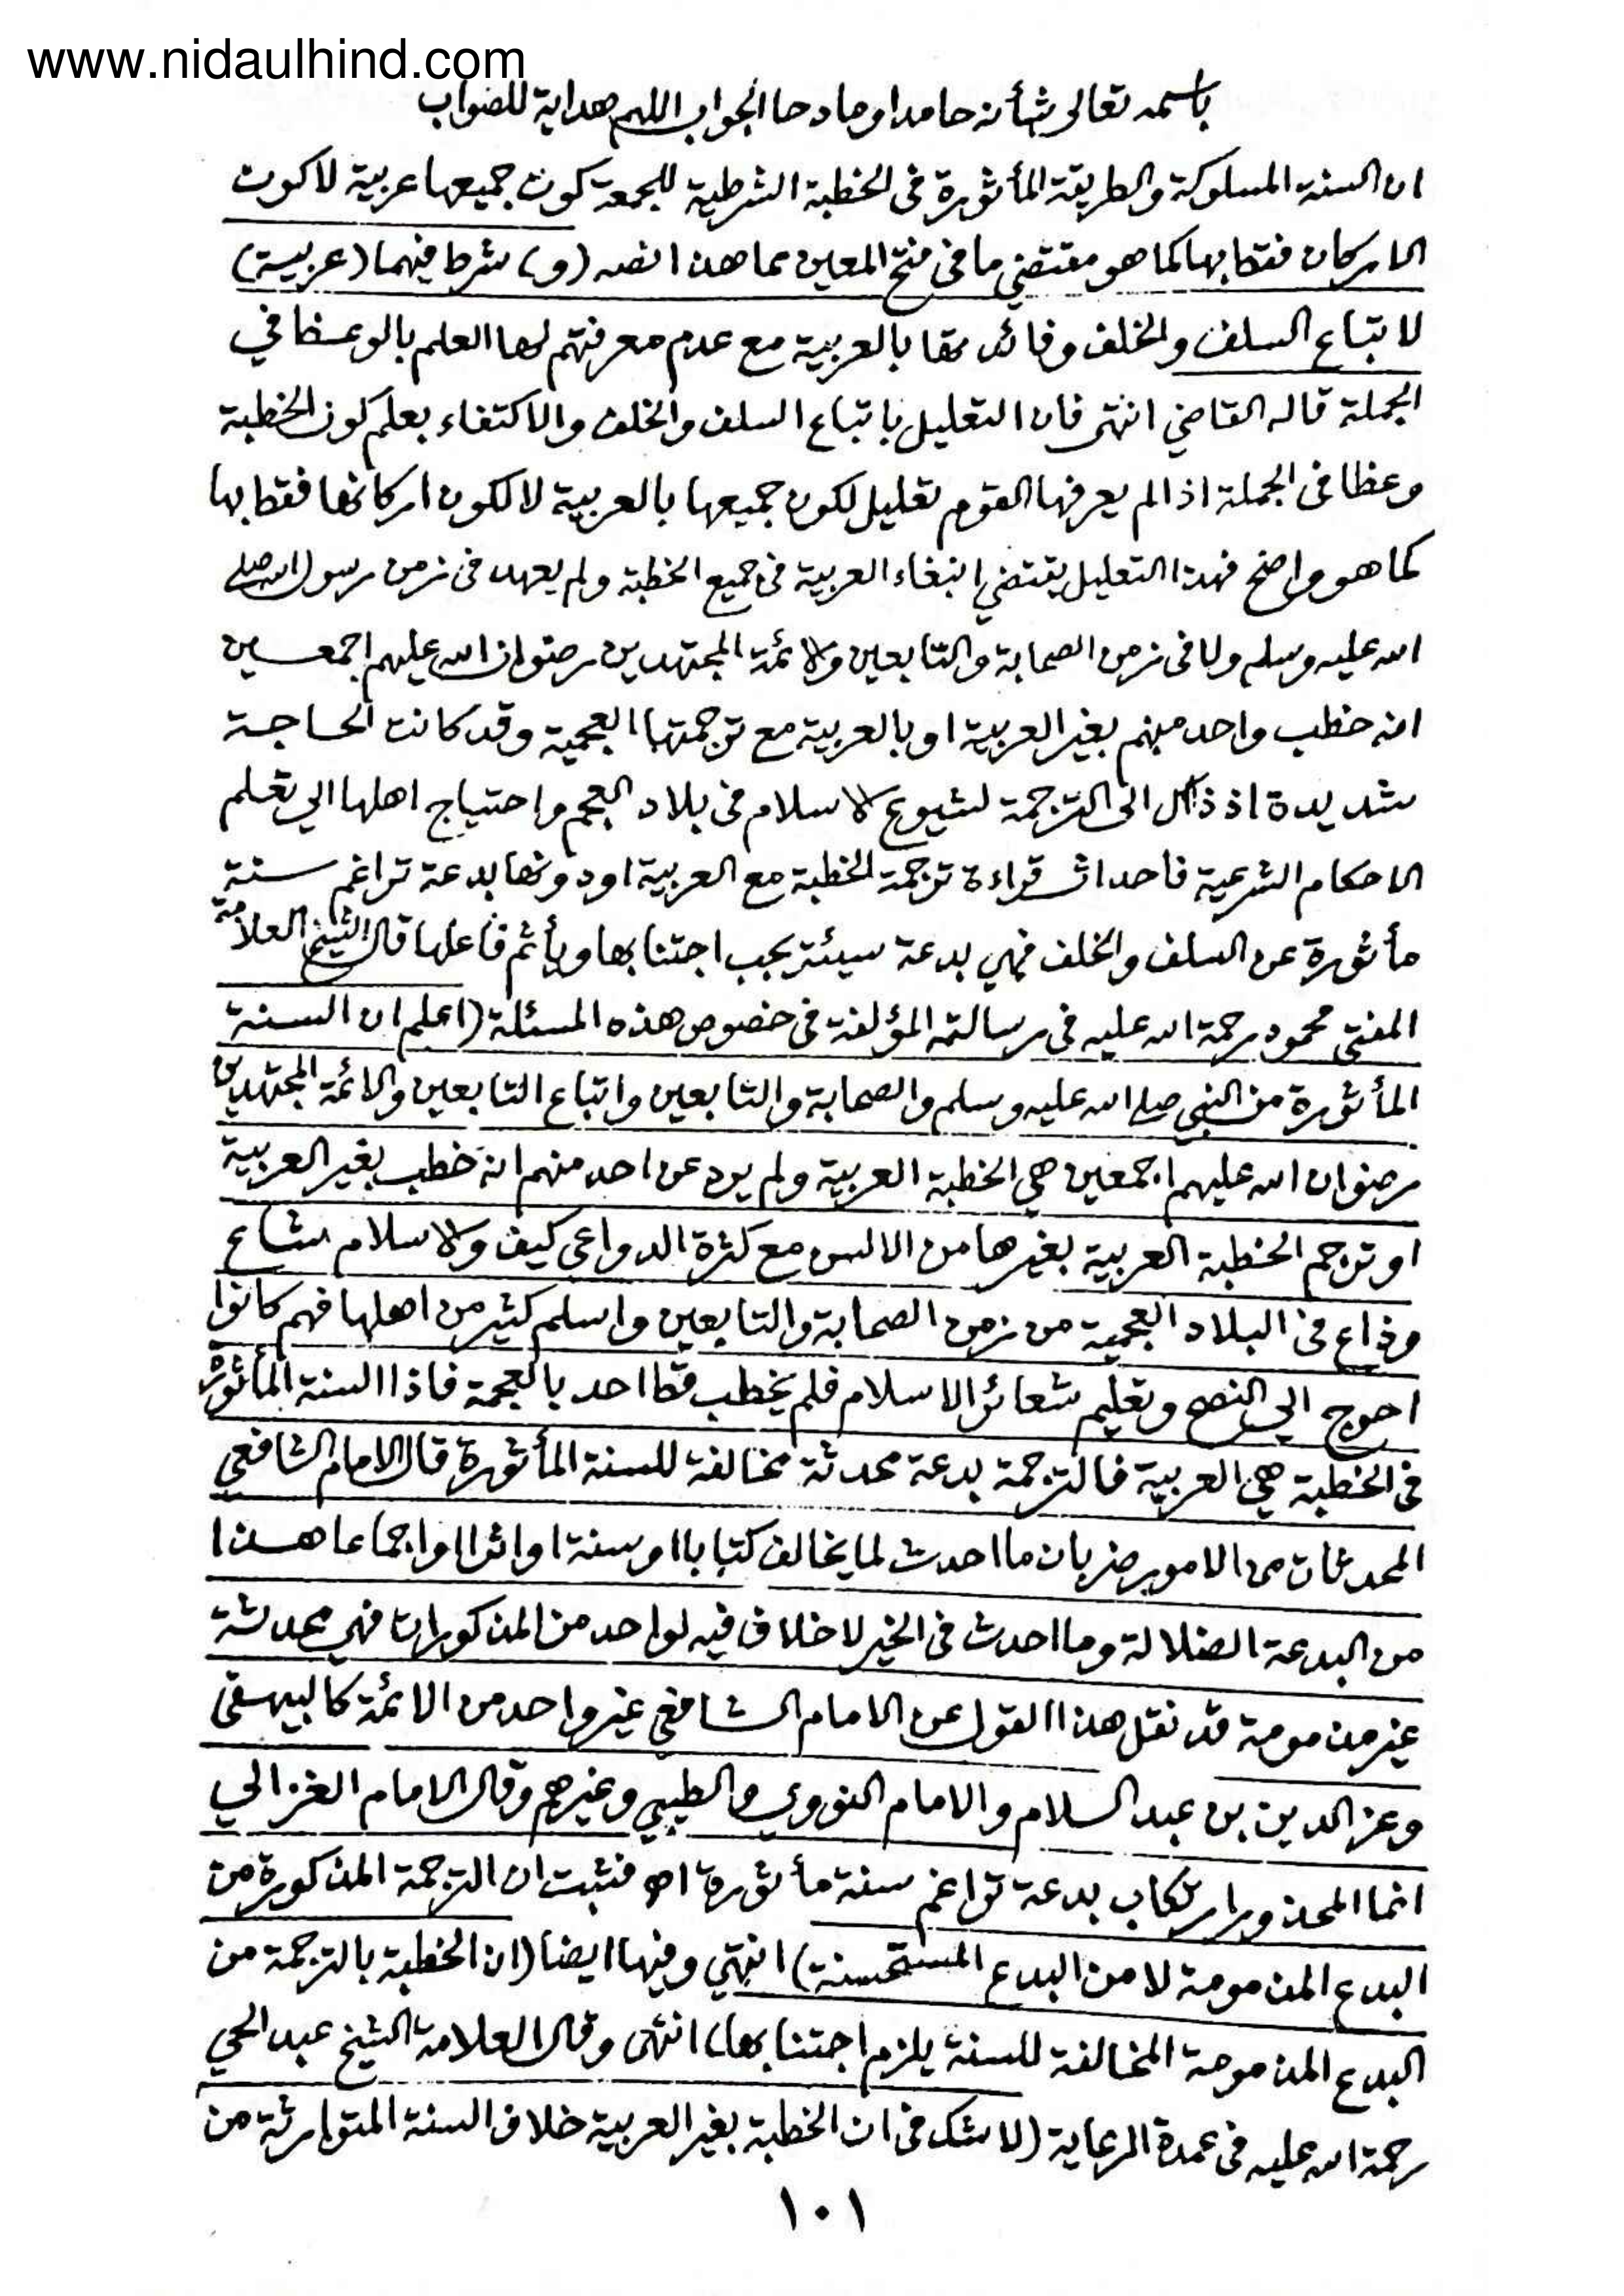 www.nidaulhind.com
باسمه تعالى شأنه حامدا ومادحا الجواب اللهم هداية للصواب
ان السنة المسلوكة والطريقة المأثورة فى الخطبة الشرطية للجمعة كون جميعها عربية لا كون
الاركان فقط بها كما هو مقتضي ما فى فتح المعين بما هذا نصه (و) شرط فيهما (عربية)
لاتباع السلف والخلف وفائدتها بالعربية مع عدم معرفتهم لها العلم بالوعظ في
الجملة قاله القاضي انتهى فان التعليل باتباع السلف والخلف والاكتفاء بعلم كون الخطبة
وعظا فى الجملة اذا لم يعرفها القوم تعليل لكون جميعها بالعربية لا لكون اركانها فقط بها
كما هو واضح فهذا التعليل يقتضي ابتغاء العربية فى جميع الخطبة ولم يعهد فى زمن رسول الله صلى
الله عليه وسلم ولا فى زمن الصحابة والتابعين والائمة المجتهدين رضوان الله عليهم اجمعين
انه خطب واحد منهم بغير العربية او بالعربية مع ترجمتها العجمية وقد كانت الحاجة
شديدة اذ ذاك الى الترجمة لشيوع الاسلام فى بلاد العجم واحتياج اهلها الي تعلم
الاحكام الشرعية فاحداث قراءة ترجمة الخطبة مع العربية او دونها بدعة تراغم سنة
مأثورة عن السلف والخلف فهي بدعة سيئة يجب اجتنابها ويأثم فاعلها قال الشيخ العلامة
المفتي محمود رحمة الله عليه فى رسالته المؤلفة فى خصوص هذه المسئلة (اعلم ان السنة
المأثورة من النبي صلى الله عليه وسلم والصحابة والتابعين واتباع التابعين والائمة المجتهدين
رضوان الله عليهم اجمعين هي الخطبة العربية ولم يرد عن احد منهم انه خطب بغير العربية
او ترجم الخطبة العربية بغيرها من الالسن مع كثرة الدواعى كيف والاسلام شاع
وذاع فى البلاد العجمية من زمن الصحابة والتابعين واسلم كثير من اهلها فهم كانوا
احوج الي النصح وتعليم شعائر الاسلام فلم يخطب قط احد بالعجمة فاذا السنة المأثورة
فى الخطبة هي العربية فالترجمة بدعة محدثة مخالفة للسنة المأثورة قال الامام الشافعي
المحدثات من الامور ضربان ما احدث لما يخالف كتابا او سنة او اثرا او اجماعا هذا
من البدعة الضلالة وما احدث فى الخير لا خلاف فيه لواحد من المذكورات فهي محدثة
غير مذمومة قد نقل هذا القول عن الامام الشافعي غير واحد من الائمة كالبيهقى
وعز الدين بن عبد السلام والامام النووي والطيبي وغيرهم وقال الامام الغزالي
انما المحذور ارتكاب بدعة تراغم سنة مأثورة اه فثبت ان الترجمة المذكورة من
البدع المذمومة لا من البدع المستحسنة) انتهي وفيها ايضا (ان الخطبة بالترجمة من
البدع المذمومة المخالفة للسنة يلزم اجتنابها) انتهى وقال العلامة الشيخ عبد الحي
رحمة الله عليه فى عمدة الرعاية (لا شك فى ان الخطبة بغير العربية خلاف السنة المتوارثة من
١٠١